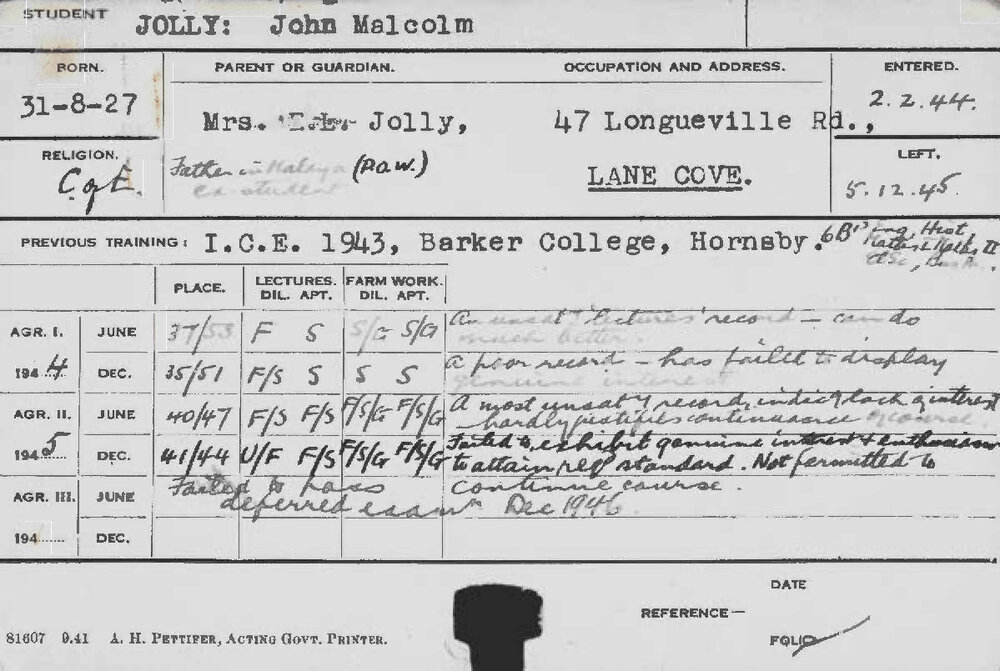 STUDENT
JOLLY: John Malcolm
BORN. PARENT OR GUARDIAN. OCCUPATION AND ADDRESS. ENTERED.
31-8-27 Mrs. Jolly, 47 Longueville Rd., 2.2.44.
RELIGION. LEFT.
C of E. Father in Malaya (P.O.W.) LANE COVE. 5.12.45.
ex-student
PREVIOUS TRAINING: I.C.E. 1943, Barker College, Hornsby. 6B's Eng, Hist,
PLACE. LECTURES. FARM WORK.
DIL. APT. DIL. APT.
AGR. I. JUNE 37/53 F S S/G S/G An unsaty 'lectures' record - can do
much better.
1944 DEC. 35/51 F/S S S S A poor record - has failed to display
genuine interest
AGR. II. JUNE 40/47 F/S F/S F/S/G F/S/G A most unsaty record, indicg lack of interest
- hardly justifies continuance of course.
1945 DEC. 41/44 U/F F/S F/S/G F/S/G Failed to exhibit genuine interest & enthusiasm
to attain reqd standard. Not permitted to
continue course.
AGR. III. JUNE Failed to pass
deferred exams Dec 1946.
194...... DEC.
DATE
REFERENCE—
FOLIO
81607 9.41 A. H. PETTIFER, ACTING GOVT. PRINTER.